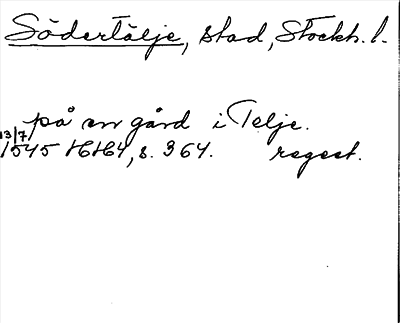 Södertälje, stad, Stockh. l.
på en gård i Telje.
13/7
1545 HH64, s. 364. regest.